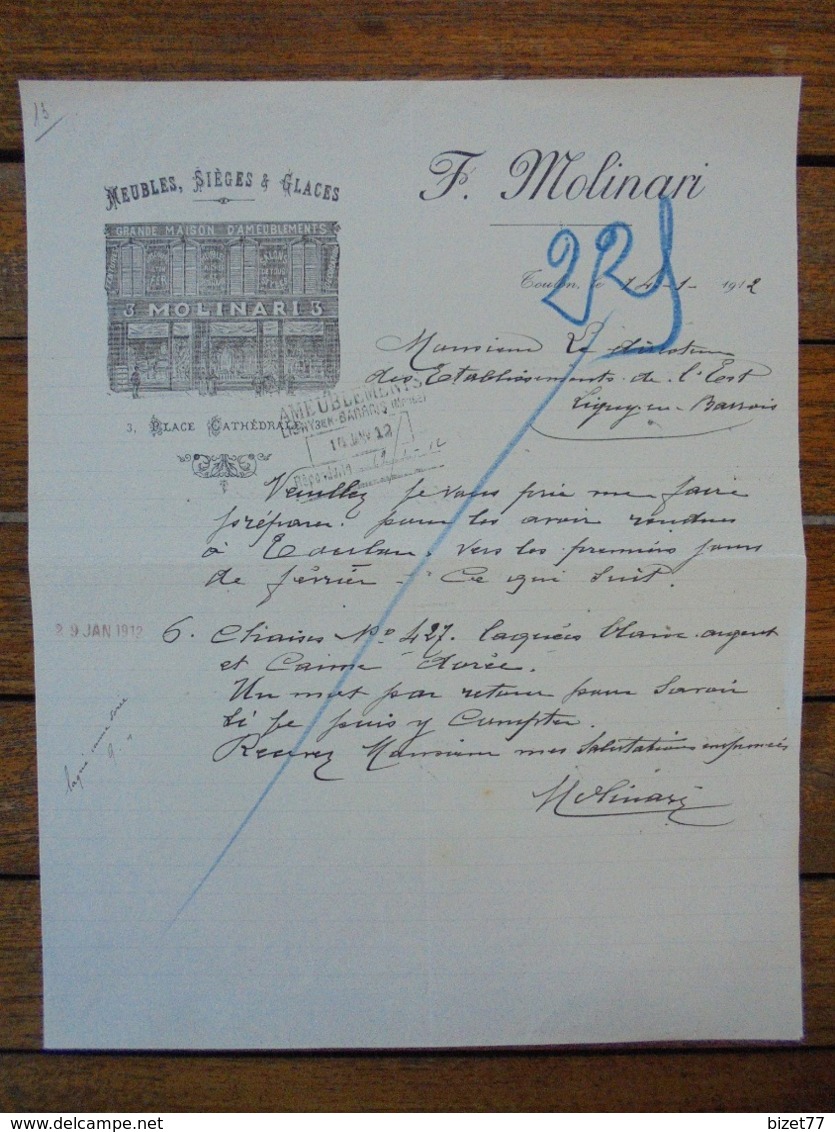 13
MEUBLES, SIÈGES & GLACES
F. Molinari
GRANDE MAISON D'AMEUBLEMENTS
3 MOLINARI 3
3, PLACE CATHÉDRALE
225
Toulon, le 14-1- 1912
Monsieur Le directeur
des Etablissements de l'Est
Ligny-en-Barrois
AMEUBLEMENTS
LIGNY-EN-BARROIS (Meuse)
JAN 12
Répondu le
Veuillez je vous prie me faire
préparer. pour les avoir rendues
à Toulon. vers les premiers jours
de février - Ce qui suit.
29 JAN 1912
6. Chaises No 427. laquées blanc argent
et Canne dorée.
Un mot par retour pour savoir
si je puis y compter.
Recevez Monsieur mes salutations empressées
Molinari
laqué canne dorée
delcampe.net
bizet77